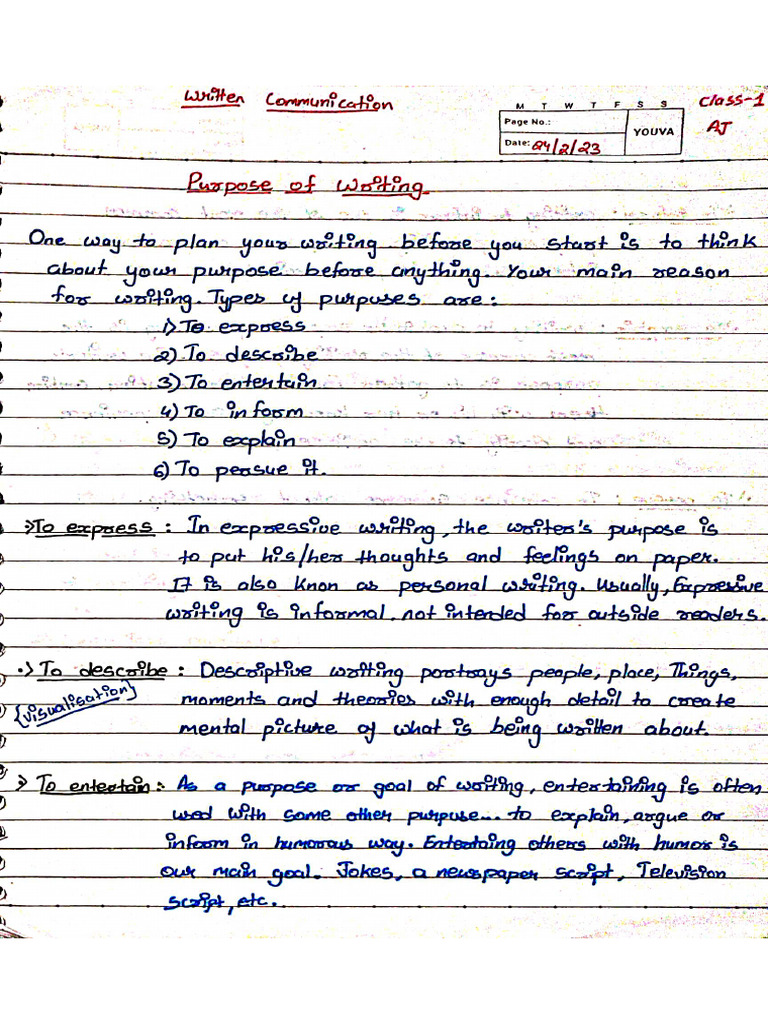 Written Communication
M T W T F S S
Class-1
Page No.:
YOUVA
AJ
Date: 24/2/23
Purpose of Writing
One way to plan your writing before you start is to think
about your purpose before anything. Your main reason
for writing. Types of purpuses are:
1) To express
2) To describe
3) To entertain
4) To inform
5) To explain
6) To persue it.
> To express : In expressive writing, the writer's purpose is
to put his/her thoughts and feelings on paper.
It is also knon as personal writing. Usually, Expressive
writing is informal, not intended for outside readers.
•> To describe : Descriptive writing portrays people, place, Things,
{visualisation} moments and theories with enough detail to create
mental picture of what is being written about.
> To entertain : As a purpose or goal of writing, entertaining is often
used with some other purpuse... to explain, argue or
inform in humorous way. Entertaing others with humor is
our main goal. Jokes, a newspaper script, Television
script, etc.